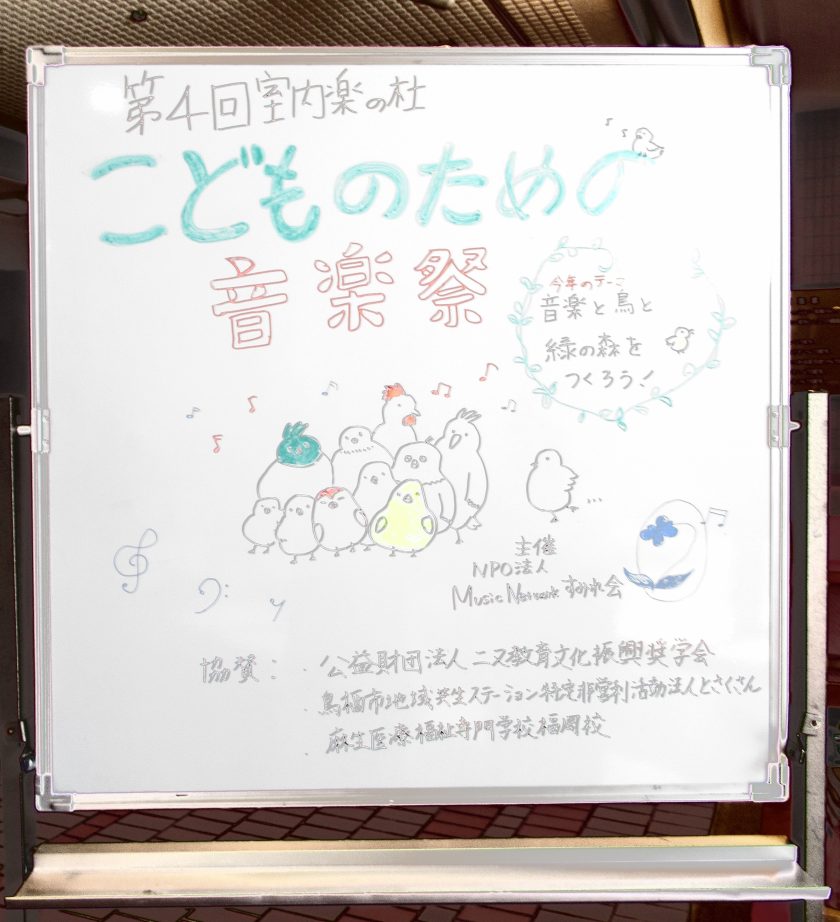 第4回室内楽の杜
こどものための
音楽祭
今年のテーマ
音楽と鳥と
緑の森を
つくろう!
主催
NPO法人
Music Network すみれ会
協賛:
・公益財団法人ニヌ教育文化振興奨学会
・鳥栖市地域共生ステーション特定非営利活動法人とさくさん
・麻生医療福祉専門学校福岡校